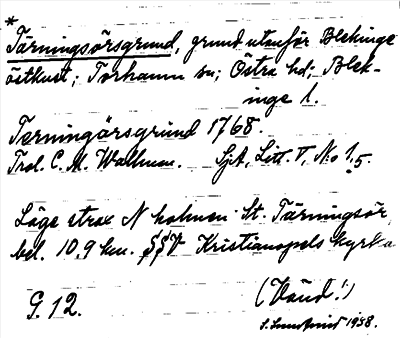 *
Tärningsörsgrund, grund utanför Blekinge
östkust; Torhamn sn; Östra hd; Blek-
inge l.
Terningörsgrund 1768.
Trol. C. M. Wallman. SjA, Litt. V, No 1,5.
Läge strax N holmen St. Tärningsör,
bel. 10,9 km. SSV Kristianopels kyrka
G. 12.
(Vänd!)
1938.